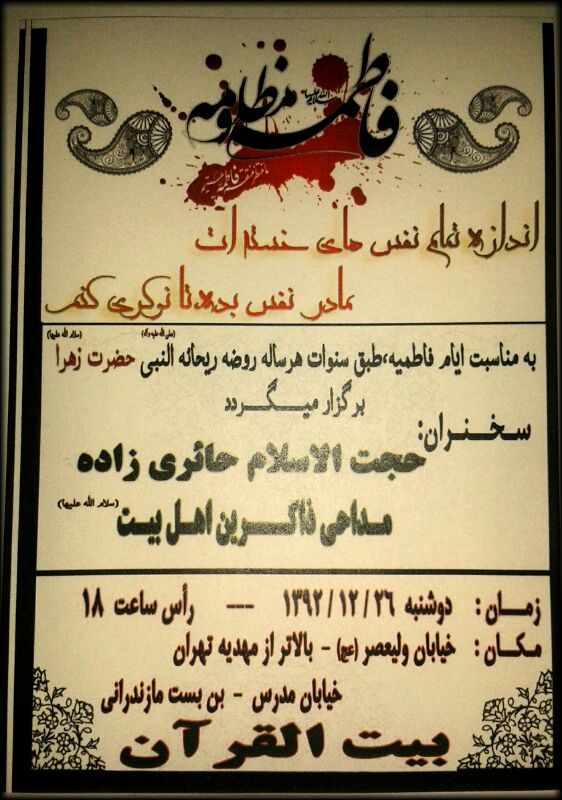 فاطمه مظلومه
اندازه تمام نفس های خسته ات
مادر نفس بده تا نوکری کنم
به مناسبت ایام فاطمیه،طبق سنوات هرساله روضه ریحانه النبی (صلی الله علیه وآله) حضرت زهرا (سلام الله علیها)
برگزار میگردد
سخنران:
حجت الاسلام حائری زاده
مداحی ذاکرین اهل بیت (سلام الله علیها)
زمان: دوشنبه ۱۳۹۲/۱۲/۲۶ --- رأس ساعت ۱۸
مکان: خیابان ولیعصر (عج) - بالاتر از مهدیه تهران
خیابان مدرس - بن بست مازندرانی
بیت القرآن